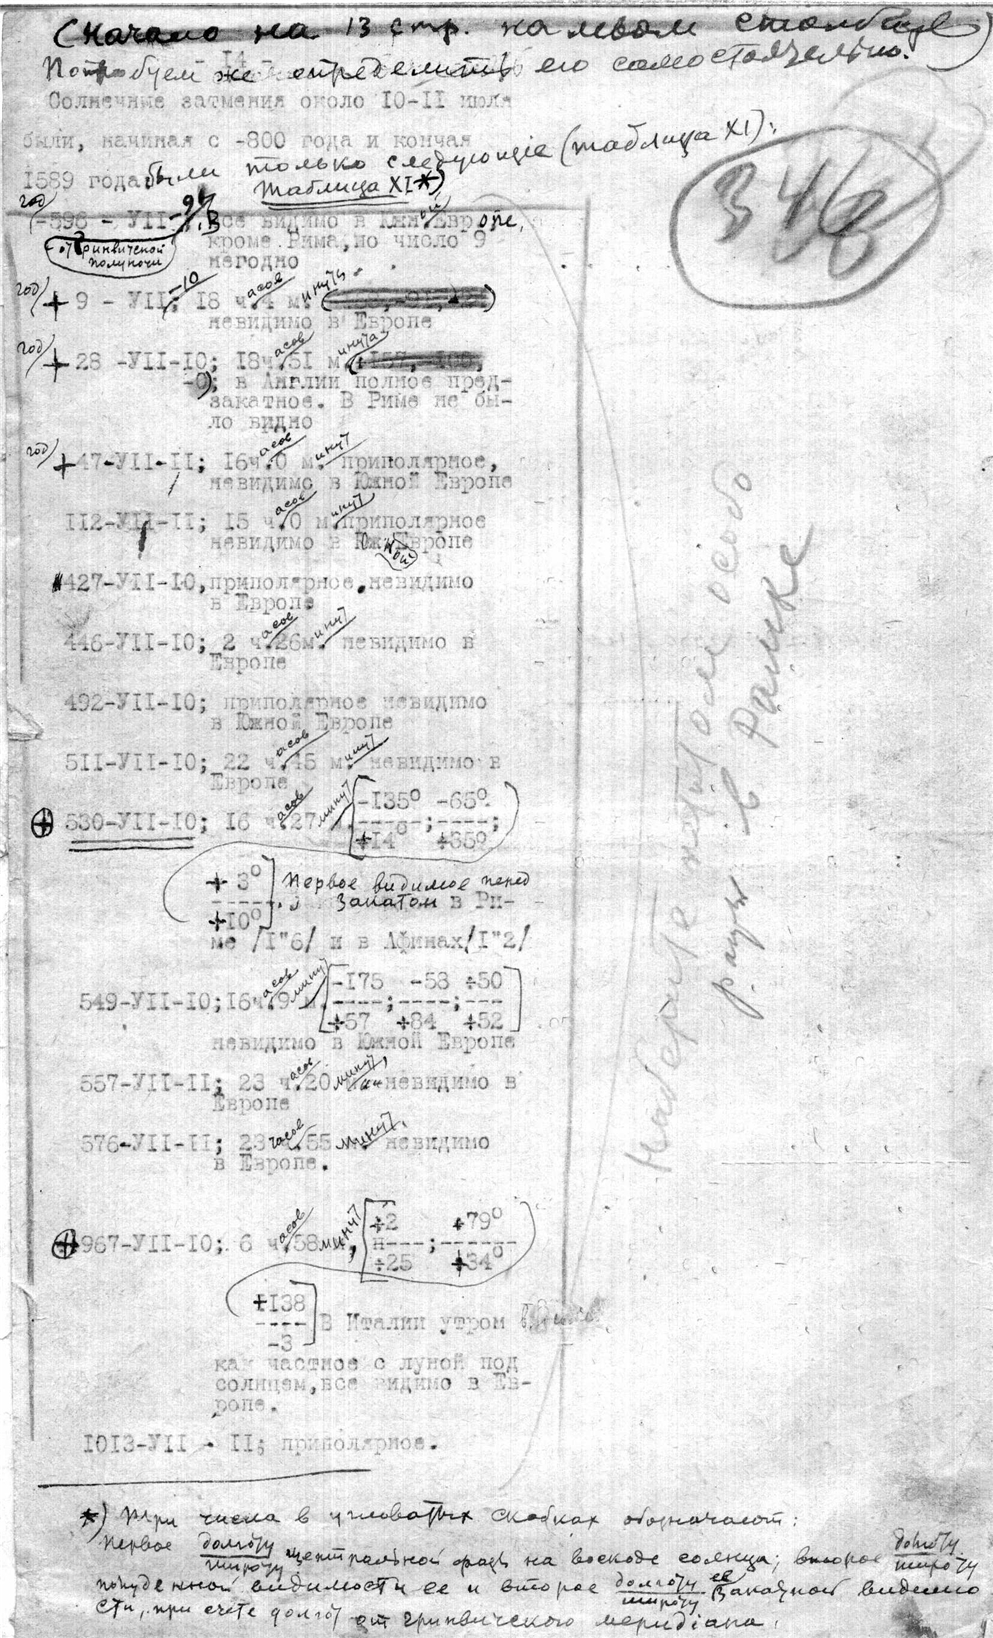 (Начало на 13 стр. на левом столбце)
- 14 -
Попробуем же определить его самостоятельно.
Солнечные затмения около 10-11 июля
были, начиная с -800 года и кончая
1589 годом были только следующие (таблица XI):
Таблица XI*)
346
год
-596 - УII-9; все видимо в Южной Европе,
кроме Рима, но число 9
негодно
от Гринвичской
полуночи
год + 9 - УII-10; 18 часов 4 минуты
невидимо в Европе
год + 28 -УII-10; 18 часов 51 минута
-0); в Англии полное пред-
закатное. В Риме не бы-
ло видно
год + 47-УII-II; 16 часов 0 минут приполярное,
невидимо в Южной Европе
112-УII-II; 15 часов 0 минут приполярное
невидимо в Южной Европе
427-УII-10, приполярное, невидимо
в Европе
446-УII-10; 2 часов 26 минут невидимо в
Европе
492-УII-10; приполярное невидимо
в Южной Европе
511-УII-10; 22 часов 45 минут невидимо в
Европе
+ 530-УII-10; 16 часов 27 минут [-135° -65°
----;----;
+14° +35°
+ 3°
-----
+10°] Первое видимое перед
закатом в Ри-
ме /I"6/ и в Афинах /I"2/
549-УII-10; 16 часов 9 минут [-175 -58 +50
----;----;---
+57 +84 +52]
невидимо в Южной Европе
557-УII-II; 23 часов 20 минут, невидимо в
Европе
576-УII-II; 23 часов 55 минут, невидимо
в Европе.
+ 967-УII-10; 6 часов 58 минут, [+2 +79°
----;------
+25 +34°
+138
----
-3] В Италии утром
как частное с луной под
солнцем, все видимо в Ев-
ропе.
1013-УII - II; приполярное.
Наберите петитом особо
в рамке
*) Три числа в угловатых скобках обозначают:
первое долготу/широту центральной фазы на восходе солнца; второе долготу/широту
полуденной видимости ее и второе долготу/широту ее закатной видимо
сти, при счете долгот от гринвичского меридiана.